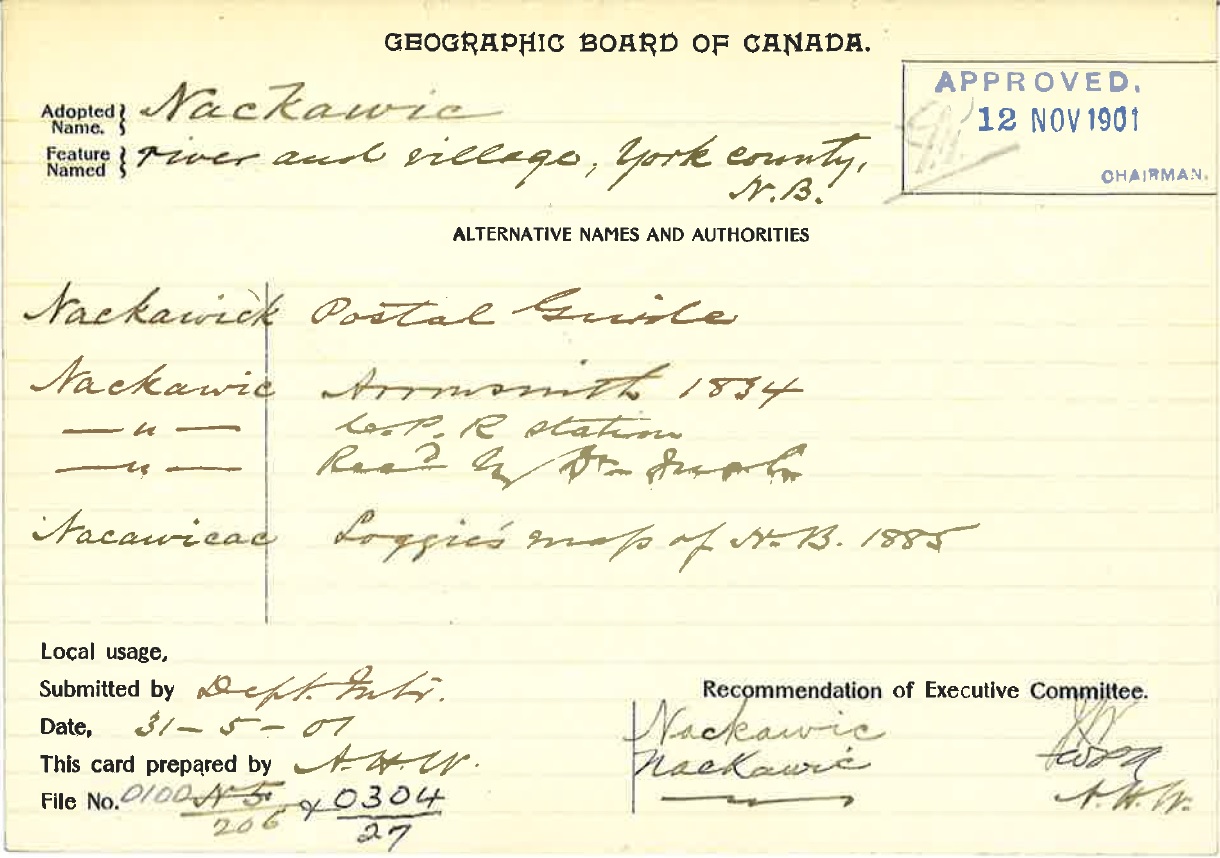 GEOGRAPHIC BOARD OF CANADA.
APPROVED.
12 NOV 1901
CHAIRMAN.
Adopted Name. } Nackawic
Feature Named } river and village, York county,
N.B.
ALTERNATIVE NAMES AND AUTHORITIES
Nackawick Postal Guide
Nackawic Arrowsmith 1834
— " — C.P.R station
— " — by Dr
Nacawicac Loggie's map of N.B. 1885
Local usage,
Submitted by Dept. Intr.
Date, 31-5-01
This card prepared by A.H.W.
File No. 0100 N5/206 & 0304/27
Recommendation of Executive Committee.
Nackawic
Nackawic
— " — A.H.W.